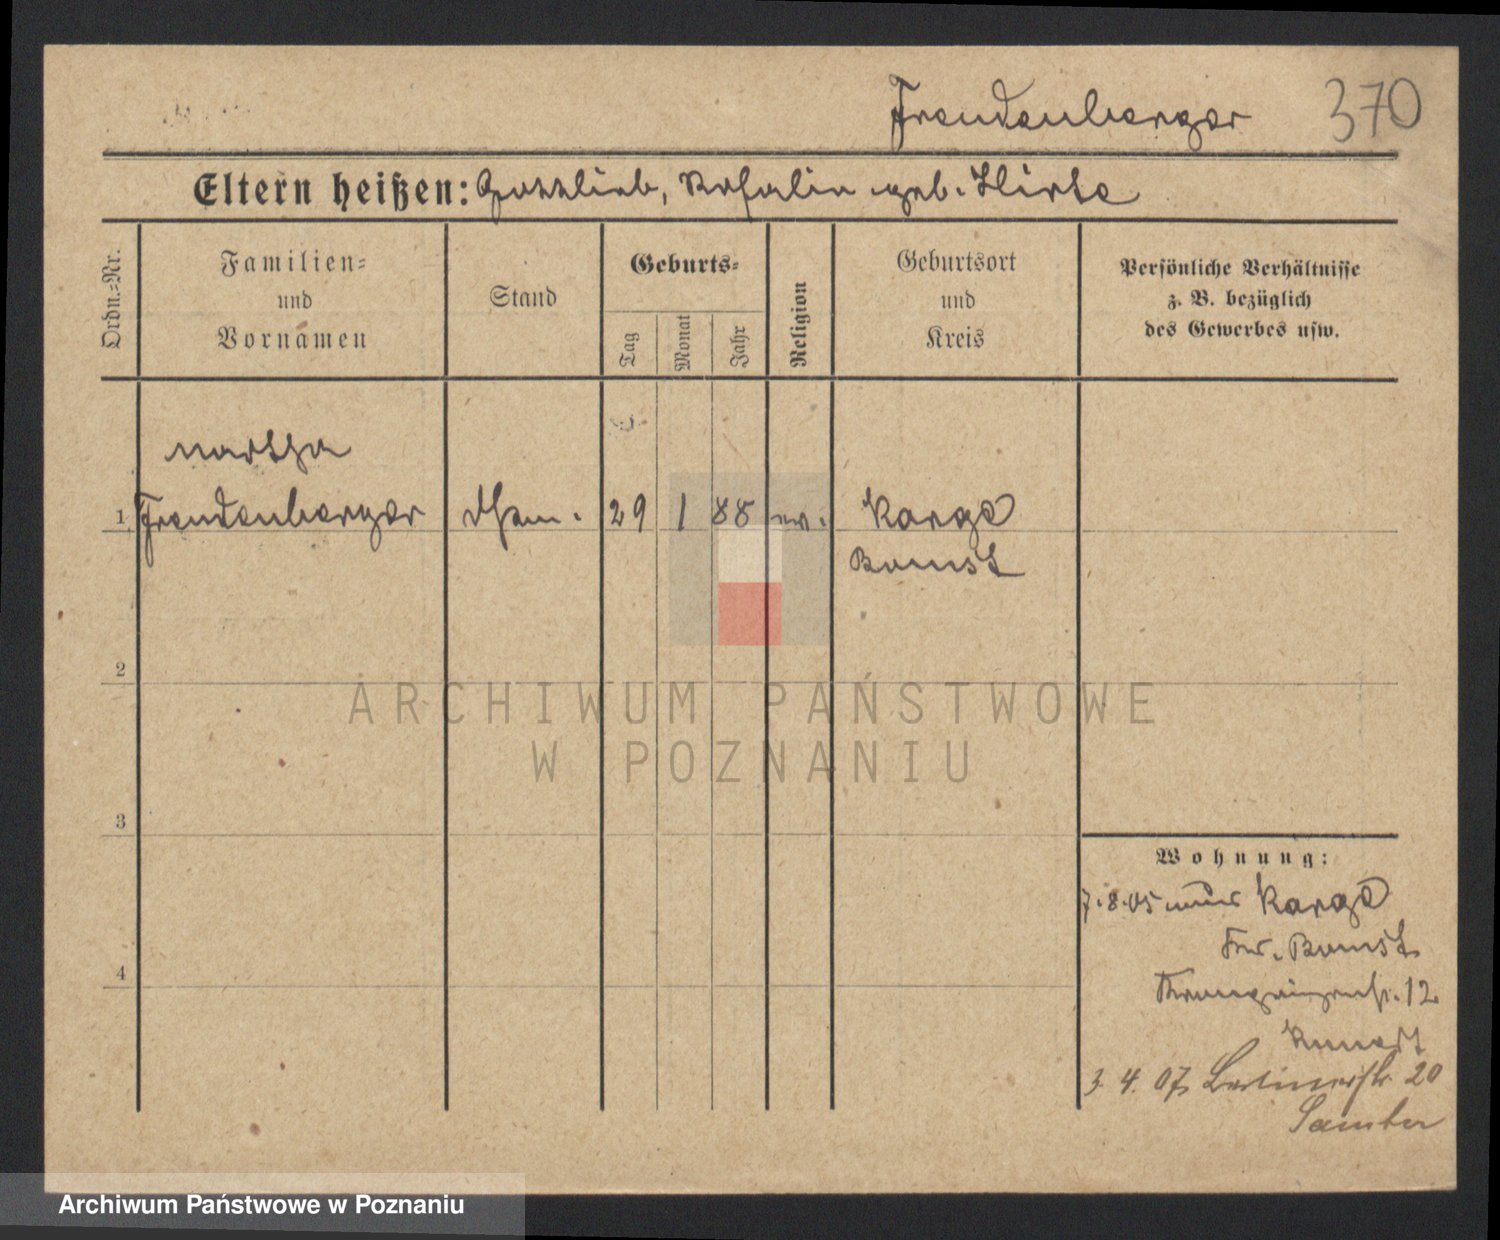 Freudenberger 370
Eltern heißen: Gottlieb, Rosalie geb. Hirte
Ordn.-Nr.
Familien-
und
Vornamen
Stand
Geburts-
Tag
Monat
Jahr
Religion
Geburtsort
und
Kreis
Persönliche Verhältnisse
z. B. bezüglich
des Gewerbes usw.
Martha
1 Freudenberger 29 1 88 ev. Kargo
Bomst
2
ARCHIWUM PAŃSTWOWE
W POZNANIU
3
Wohnung:
7.8.05 Kargo
Bomst
4
12
3. 4. 07. Berlinerstr. 20
Archiwum Państwowe w Poznaniu